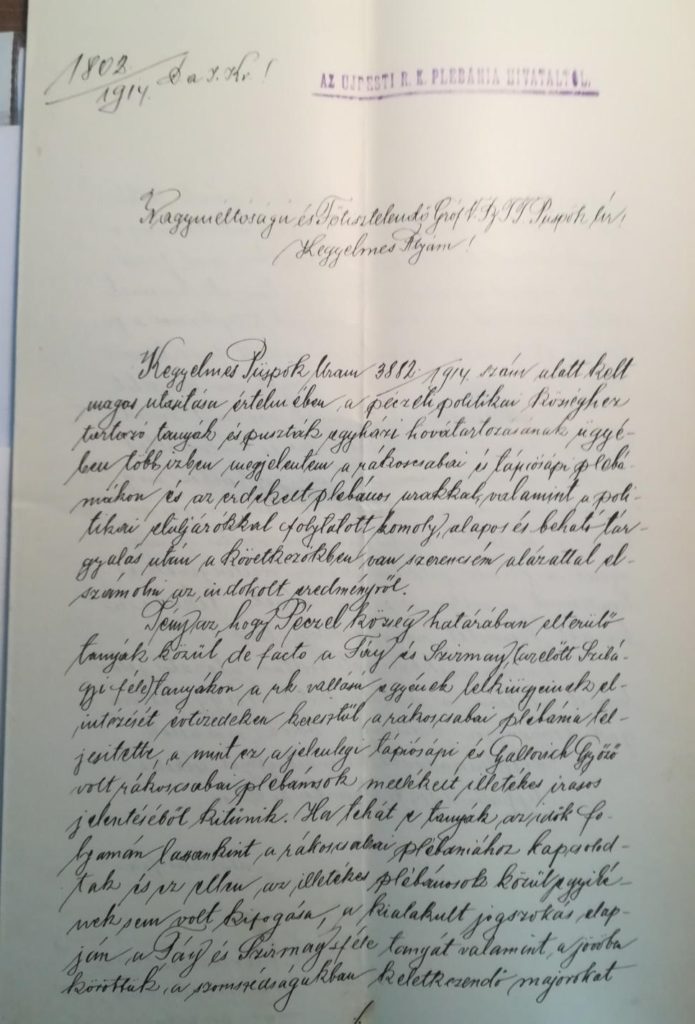 1802/1914. D a J. Kr!
AZ UJPESTI R. K. PLEBÁNIA HIVATALTÓL.
Nagyméltóságú és Főtisztelendő Gróf Püspök Úr!
Kegyelmes Atyám!
Kegyelmes Püspök Uram 3882/1914. szám alatt kelt
magas utasítása értelmében, a péczeli politikai községhez
tartozó tanyák és puszták egyházi hovátartozásának ügyé-
ben több ízben megjelentem a rákoscsabai és tápiósápi plébá-
niákon és az érdekelt plébános urakkal, valamint a poli-
tikai elüljárókkal folytatott komoly, alapos és beható tár-
gyalás után a következőkben van szerencsém alázattal el-
számolni az indokolt eredményről.
Tény az, hogy Péczel község határában elterülő
tanyák közül de facto a Fáy és Szirmay (azelőtt Szilá-
gyi-féle) tanyákon a rk. vallású egyének lelkiügyeinek el-
intézését évtizedeken keresztül a rákoscsabai plébánia tel-
jesítette, a mint ez a jelenlegi tápiósápi és Gallovich Győző
volt rákoscsabai plébánosok mellékelt illetékes irásos
jelentéséből kitűnik. Ha tehát e tanyák az idők fo-
lyamán lassankint a rákoscsabai plébániához kapcsolód-
tak és ez ellen az illetékes plébánosok közül egyiké-
nek sem volt kifogása, a kialakult jogszokás alap-
ján a Fáy és Szirmay-féle tanyát valamint a jövőben
köröttük, a szomszédságukban keletkezendő majorokat